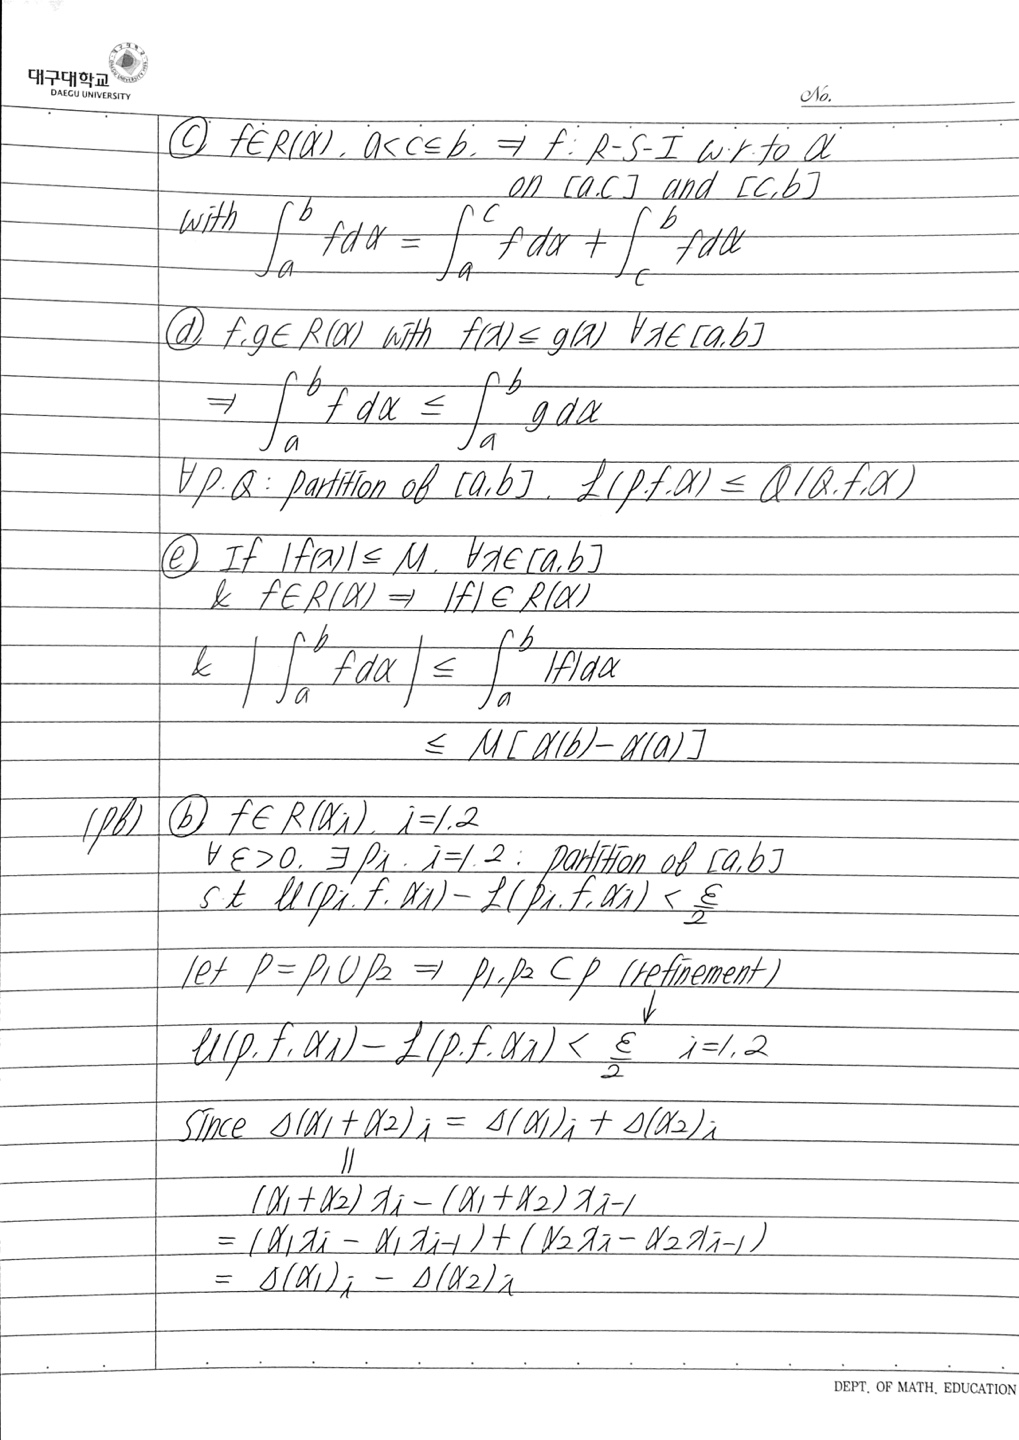 대구대학교
DAEGU UNIVERSITY
No.
ⓒ f∈R(α). a<c≤b. ⇒ f: R-S-I w.r.to α
on [a.c] and [c,b]
with ∫_a^b fdα = ∫_a^c f dα + ∫_c^b fdα
ⓓ f.g∈R(α) with f(x)≤g(x) ∀x∈[a,b]
⇒ ∫_a^b f dα ≤ ∫_a^b g dα
∀P.Q: partition of [a,b]. L(p.f.α) ≤ Q(Q.f.α)
ⓔ If |f(x)|≤ M. ∀x∈[a.b]
& f∈R(α) ⇒ |f|∈R(α)
& |∫_a^b fdα| ≤ ∫_a^b |f|dα
≤ M[α(b)-α(a)]
(pb) ⓑ f∈R(αi). i=1.2
∀ε>0. ∃pi. i=1.2: partition of [a,b]
s.t U(pi.f.αi)-L(pi.f.αi) < ε/2
let p=p1∪p2 ⇒ p1.p2⊂p (refinement)
↓
U(p.f.αi)-L(p.f.αi) < ε/2 i=1.2
since Δ(α1+α2)i = Δ(α1)i + Δ(α2)i
||
(α1+α2)xi-(α1+α2)xi-1
= (α1xi - α1xi-1)+(α2xi-α2xi-1)
= Δ(α1)i - Δ(α2)i
DEPT. OF MATH. EDUCATION